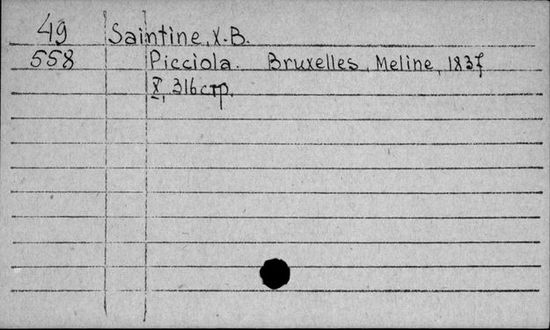 49 Saintine, X.B.
558 Picciola. Bruxelles, Meline, 1837
X, 316 стр.